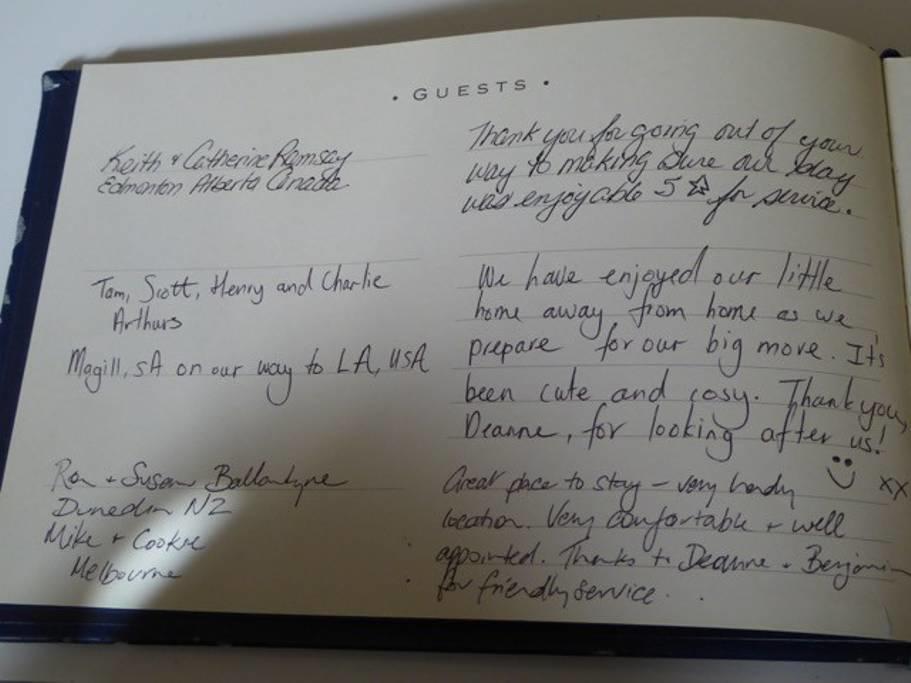 • GUESTS •
Keith & Catherine Ramsay
Edmonton Alberta Canada
Thank you for going out of your
way to making sure our stay
was enjoyable 5 ☆ for service.
Tam, Scott, Henry and Charlie
Arthurs
Magill, SA on our way to LA, USA
We have enjoyed our little
home away from home as we
prepare for our big move. It's
been cute and cosy. Thank you,
Deanne, for looking after us!
xx
Ron + Susan Ballantyne
Dunedin NZ
Mike + Cookie
Melbourne
Great place to stay – very handy
location. Very comfortable + well
appointed. Thanks to Deanne + Benjamin
for friendly service.